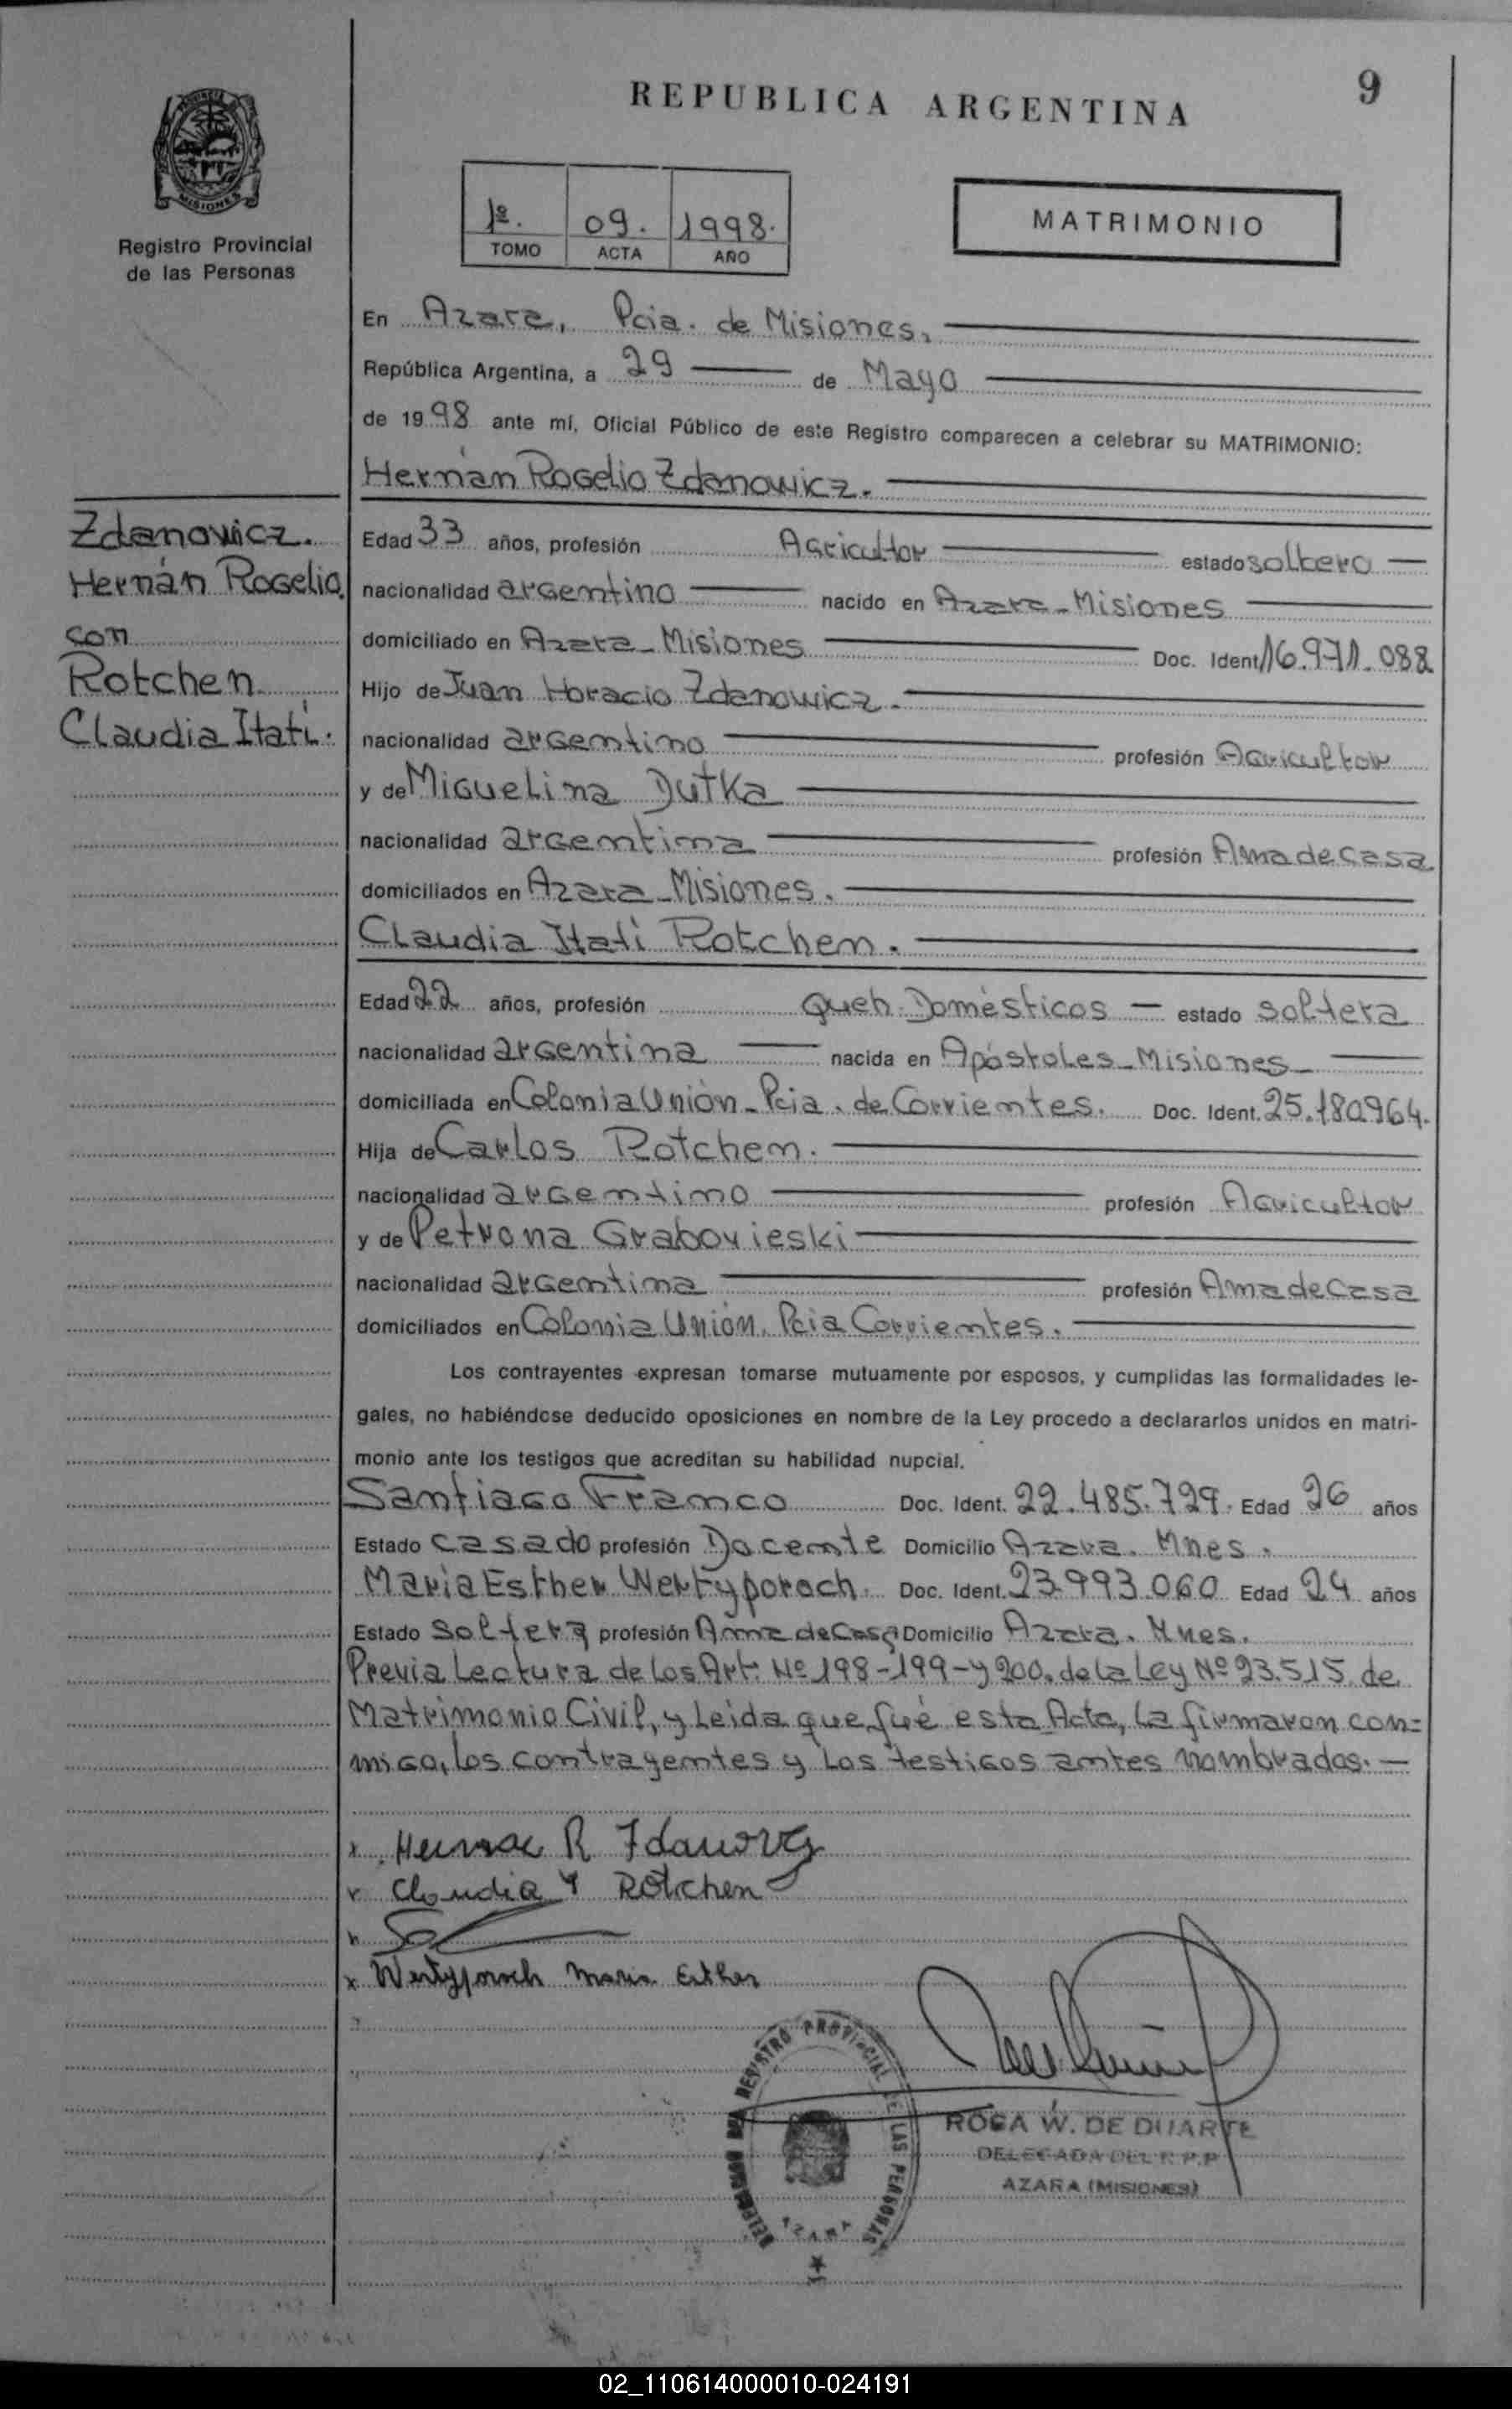 9
REPUBLICA ARGENTINA
MISIONES
Registro Provincial
de las Personas
1º. 09. 1998.
TOMO ACTA AÑO
MATRIMONIO
En Azara, Pcia. de Misiones.
República Argentina, a 29 de Mayo
de 1998 ante mí, Oficial Público de este Registro comparecen a celebrar su MATRIMONIO:
Hernán Rogelio Zdanowicz.
Zdanowicz.
Hernán Rogelio.
con
Rotchen
Claudia Itatí.
Edad 33 años, profesión Agricultor estado soltero
nacionalidad argentino nacido en Azara - Misiones
domiciliado en Azara - Misiones Doc. Ident. 16.971.088
Hijo de Juan Horacio Zdanowicz.
nacionalidad argentino profesión Agricultor
y de Miguelina Dutka
nacionalidad argentina profesión Ama de casa
domiciliados en Azara - Misiones.
Claudia Itatí Rotchen.
Edad 22 años, profesión Queh. Domésticos estado soltera
nacionalidad argentina nacida en Apóstoles - Misiones
domiciliada en Colonia Unión - Pcia. de Corrientes. Doc. Ident. 25.180964.
Hija de Carlos Rotchen.
nacionalidad argentino profesión Agricultor
y de Petrona Grabovieski
nacionalidad argentina profesión Ama de Casa
domiciliados en Colonia Unión. Pcia Corrientes.
Los contrayentes expresan tomarse mutuamente por esposos, y cumplidas las formalidades le-
gales, no habiéndose deducido oposiciones en nombre de la Ley procedo a declararlos unidos en matri-
monio ante los testigos que acreditan su habilidad nupcial.
Santiago Franco Doc. Ident. 22.485.729. Edad 26 años
Estado casado profesión Docente Domicilio Azara. Mnes.
María Esther Wertyporoch. Doc. Ident. 23.993.060 Edad 24 años
Estado Soltera profesión Ama de Casa Domicilio Azara. Mnes.
Previa Lectura de Los Art: Nº 198-199-y 200. de la Ley Nº 23.515 de
Matrimonio Civil, y Leída que fué esta Acta, la firmaron con=
migo, los contrayentes y Los testigos antes nombrados.
Claudia Y Rotchen
Wertyporoch Maria Esther
DELEGACION DEL REGISTRO PROVINCIAL DE LAS PERSONAS
AZARA
ROSA W. DE DUARTE
DELEGADA DEL R.P.P
AZARA (MISIONES)
02_110614000010-024191